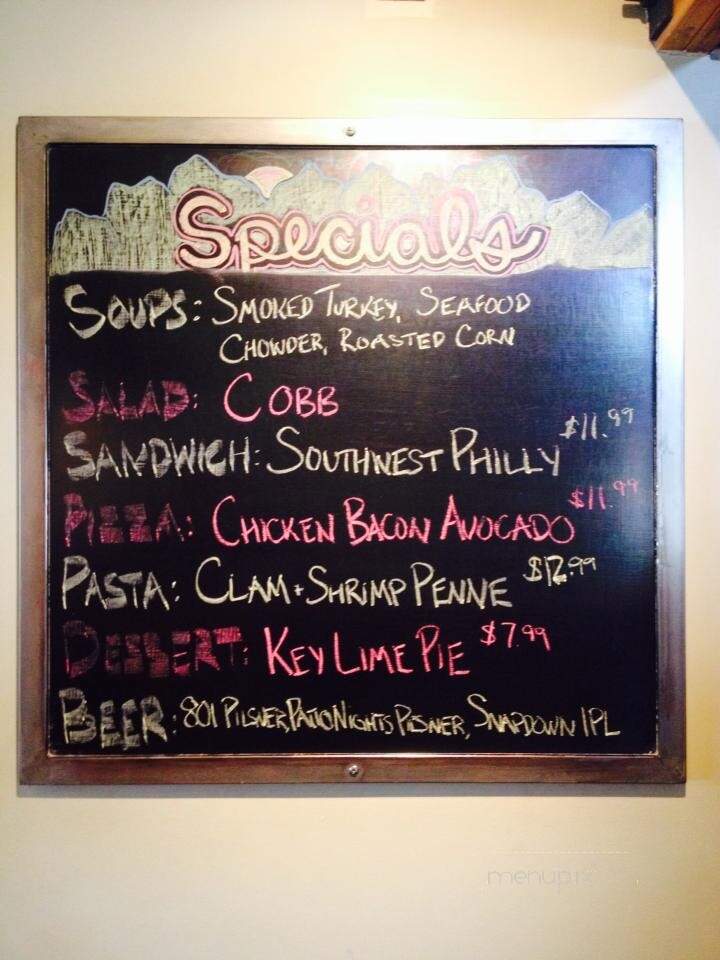 Specials
SOUPS: SMOKED TURKEY, SEAFOOD
CHOWDER, ROASTED CORN
SALAD: COBB
SANDWICH: SOUTHWEST PHILLY $11.99
PIZZA: CHICKEN BACON AVOCADO $11.99
PASTA: CLAM + SHRIMP PENNE $12.99
DESSERT: KEY LIME PIE $7.99
BEER: 801 PILSNER, PATIO NIGHTS PILSNER, SNAPDOWN IPL